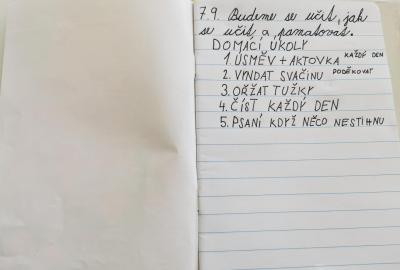 7.9. Budeme se učit, jak
se učit a pamatovat.
DOMACÍ ÚKOLY
1. ÚSMĚV + AKTOVKA KAŽDÝ DEN
2. VYNDAT SVAČINU PODĚKOVAT
3. OŘŽAT TUŽKY
4. ČÍST KAŽDÝ DEN
5. PSANÍ KDYŽ NĚCO NESTIHNU